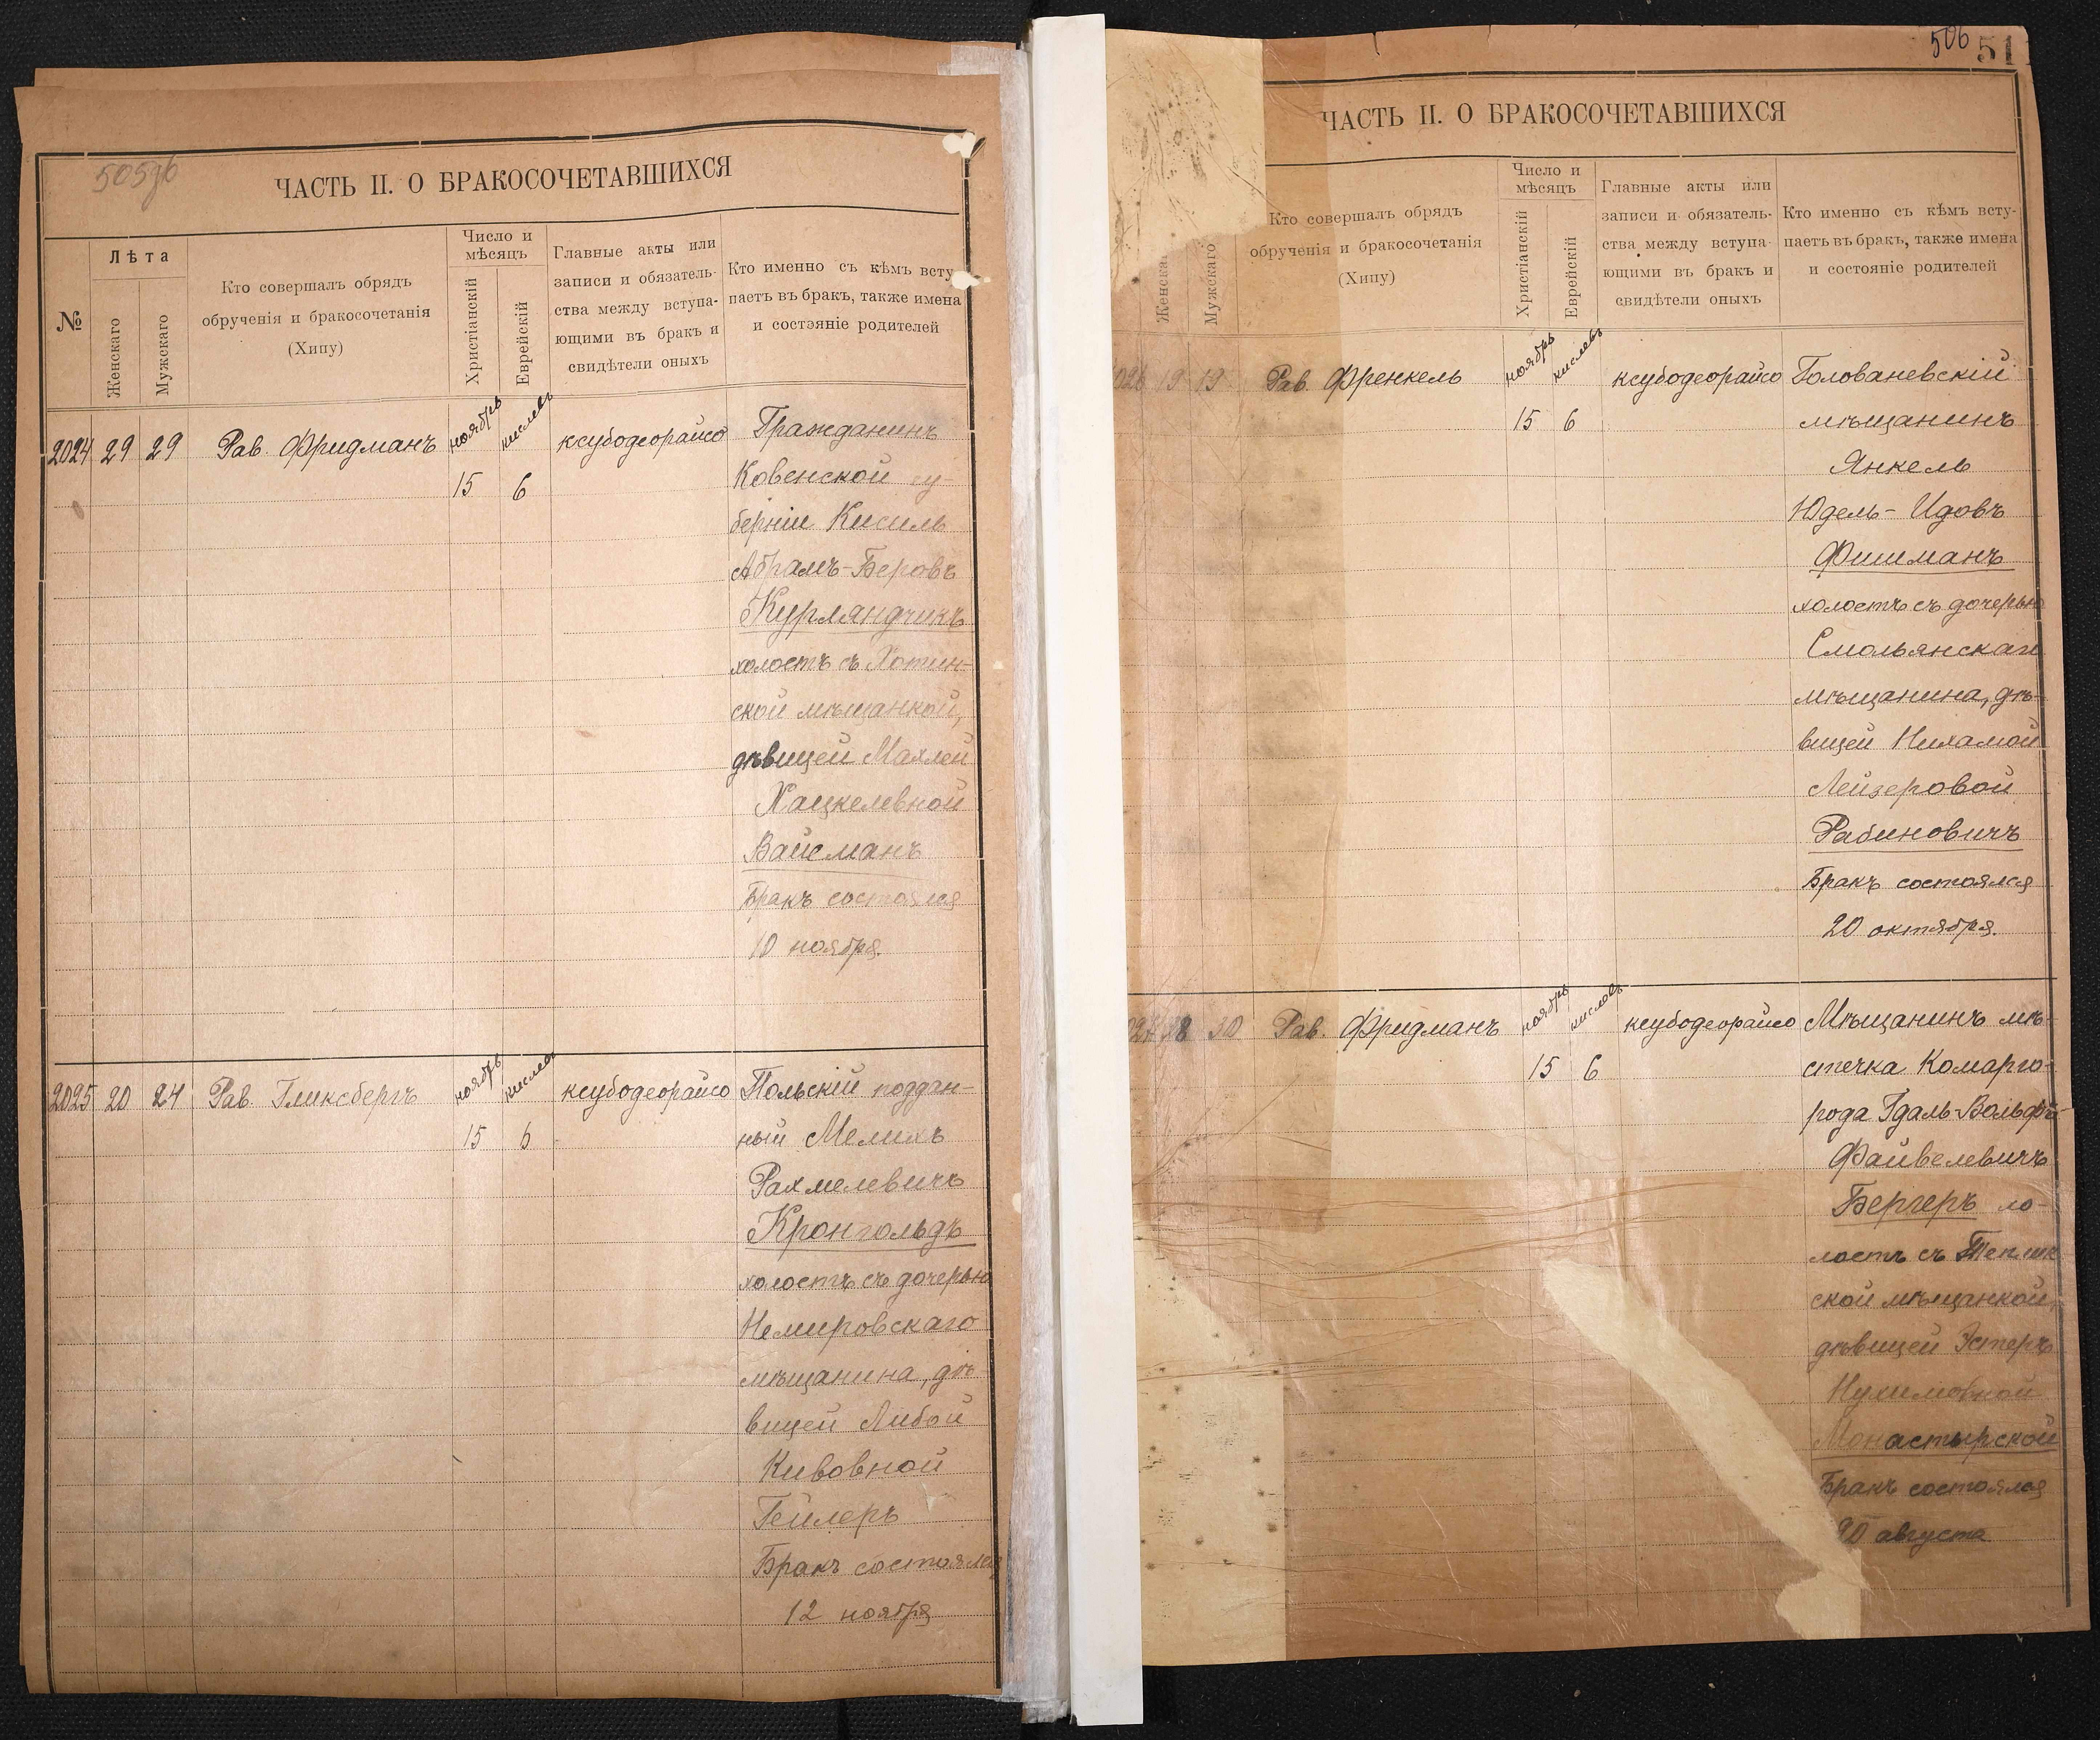 505зв
ЧАСТЬ II. О БРАКОСОЧЕТАВШИХСЯ
№
Лѣта
Женскаго
Мужскаго
Кто совершалъ обрядъ
обрученія и бракосочетанія
(Хипу)
Число и
мѣсяцъ
Христіанскій
Еврейскій
Главные акты или
записи и обязатель-
ства между вступа-
ющими въ бракъ и
свидѣтели оныхъ
Кто именно съ кѣмъ всту-
паетъ въ бракъ, также имена
и состояніе родителей
2024 29 29 Рав. Фридманъ ноябрь кислевъ ксубодеорайсо Гражданинъ
15 6 Ковенской гу-
берніи Кисиль
Абрамъ-Беровъ
Курляндчикъ
холостъ съ Хотин-
ской мѣщанкой,
дѣвицей Малкей
Хацкелевной
Вайсманъ
Бракъ состоялся
10 ноября.
2025 20 24 Рав. Гликсбергъ ноябрь кислевъ ксубодеорайсо Польскій поддан-
15 6 ный Мелихъ
Рахмелевичъ
Кронгольдъ
холостъ съ дочерью
Немировскаго
мѣщанина, дѣ-
вицей Либой
Кивовной
Гейлеръ
Бракъ состоялся
12 ноября
506 51
ЧАСТЬ II. О БРАКОСОЧЕТАВШИХСЯ
Женска
Мужскаго
Кто совершалъ обрядъ
обрученія и бракосочетанія
(Хипу)
Число и
мѣсяцъ
Христіанскій
Еврейскій
Главные акты или
записи и обязатель-
ства между вступа-
ющими въ бракъ и
свидѣтели оныхъ
Кто именно съ кѣмъ всту-
паетъ въ бракъ, также имена
и состояніе родителей
026 19 19 Рав. Френкель ноябрь кислевъ ксубодеорайсо Голованевскій
15 6 мѣщанинъ
Янкель
Юдель-Идовъ
Фишманъ
холостъ съ дочерью
Смольянскаго
мѣщанина, дѣ-
вицей Нихамой
Лейзеровой
Рабиновичъ
Бракъ состоялся
20 октября.
027 28 30 Рав. Фридманъ ноябрь кислевъ ксубодеорайсо Мѣщанинъ мѣ-
15 6 стечка Комарго-
рода Гдаль-Вольфъ
Файвелевичъ
Бергеръ хо-
лостъ съ Теплик
ской мѣщанкой,
дѣвицей Эстеръ
Нухимовной
Монастырской
Бракъ состоялся
20 августа